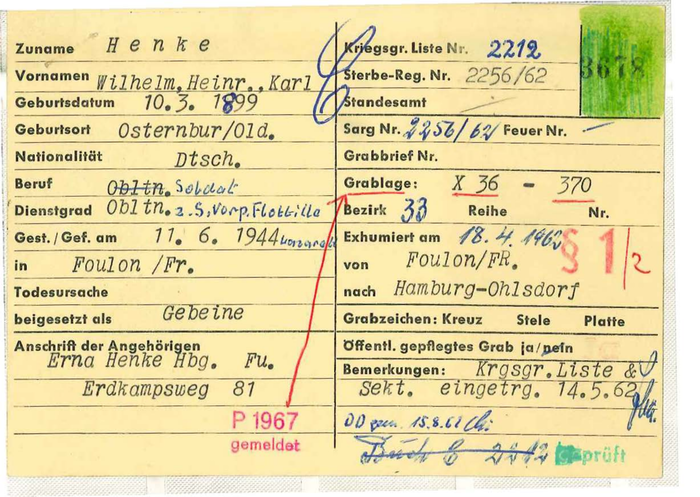 Zuname Henke
Vornamen Wilhelm, Heinr., Karl
Geburtsdatum 10.3. 1899
Geburtsort Osternbur/Old.
Nationalität Dtsch.
Beruf Obltn. Soldat
Dienstgrad Obltn. z.S. Vorp. Flottille
Gest./Gef. am 11. 6. 1944
in Foulon /Fr.
Todesursache
beigesetzt als Gebeine
Anschrift der Angehörigen
Erna Henke Hbg. Fu.
Erdkampsweg 81
P 1967
gemeldet
Kriegsgr. Liste Nr. 2212
3678
Sterbe-Reg. Nr. 2256/62
Standesamt —
Sarg Nr. 2256/62 Feuer Nr. —
Grabbrief Nr.
Grablage: X 36 - 370
Bezirk 33 Reihe Nr.
Exhumiert am 18.4.1962
§ 1/2
von Foulon/FR.
nach Hamburg-Ohlsdorf
Grabzeichen: Kreuz Stele Platte
Öffentl. gepflegtes Grab ja/nein
Bemerkungen: Krgsgr.Liste &
Sekt. eingetrg. 14.5.62
15.8.62
Buch C 2212 geprüft